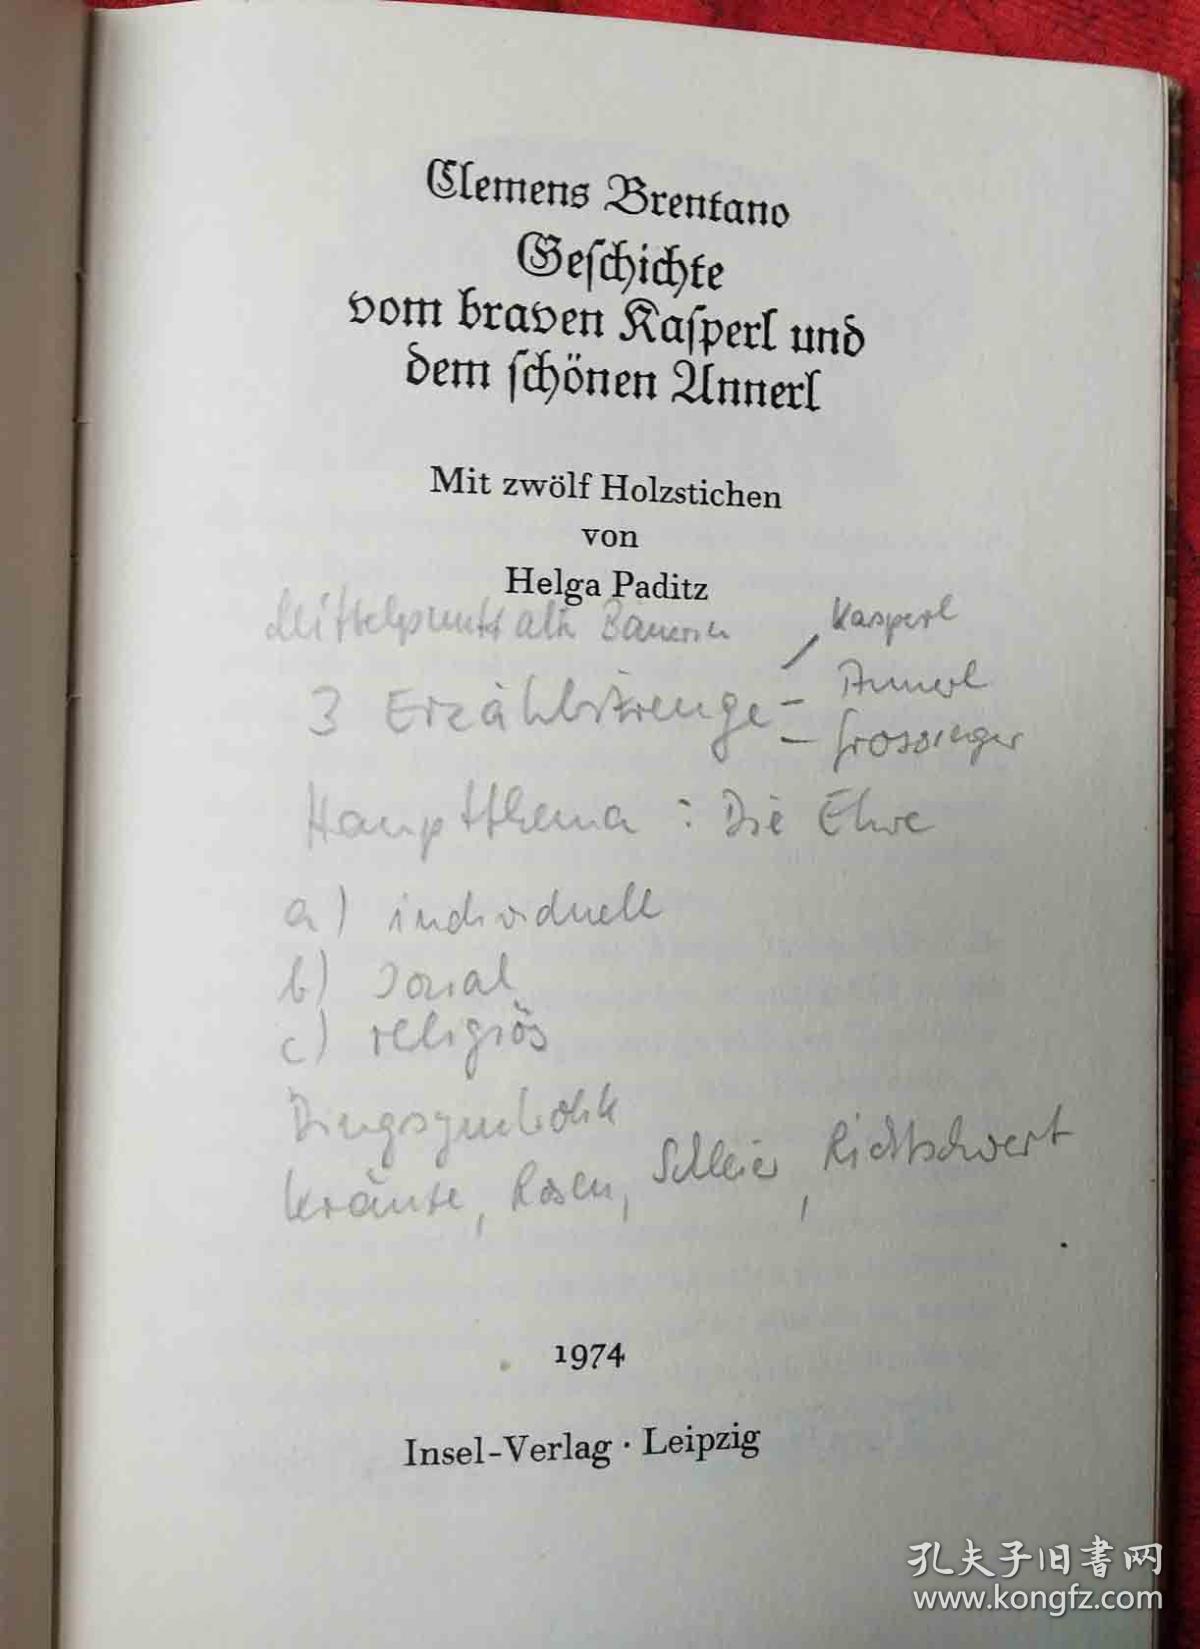 Clemens Brentano
Geschichte
vom braven Kasperl und
dem schönen Annerl
Mit zwölf Holzstichen
von
Helga Paditz
Mittelpunkt alte Bäuerin
Kasperl
3 Erzählstränge - Annerl
- Grossinger
Hauptthema : Die Ehre
a) individuell
b) sozial
c) religiös
Dingsymbolik
Kränze, Rosen, Schleier, Richtschwert
1974
Insel-Verlag · Leipzig
孔夫子旧书网
www.kongfz.com